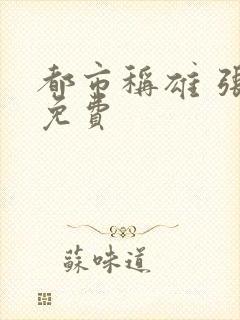 都市稱雄 張
免費
蘇味道